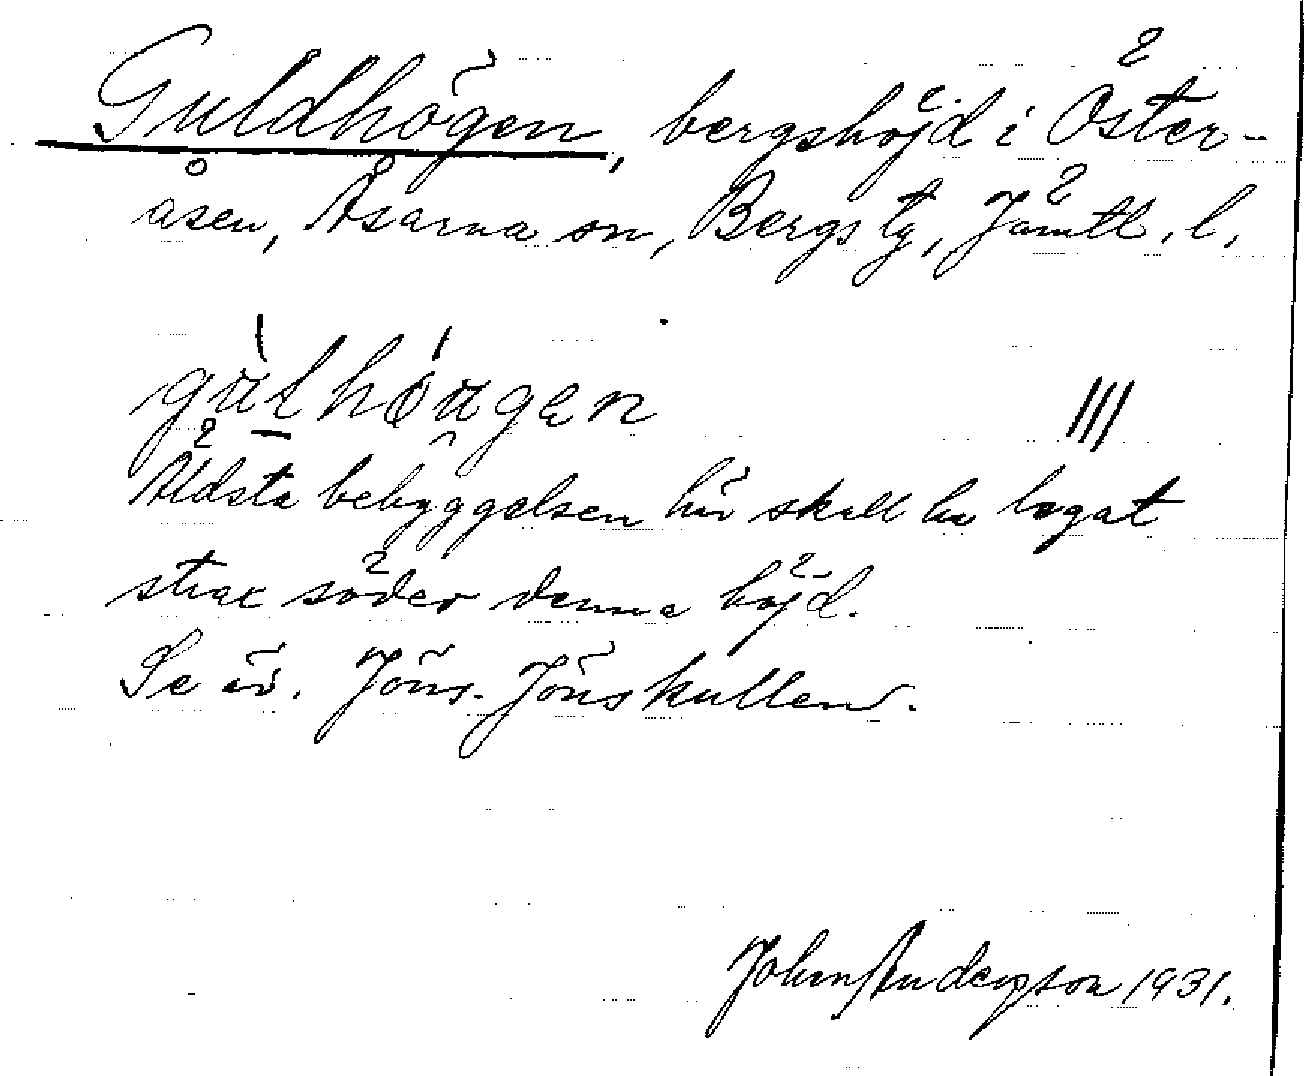 Guldhögen, bergshöjd i Öster-
åsen, Åsarna sn, Bergs tg, Jämtl. l.
III
Äldsta bebyggelsen här skall ha legat
strax söder denna höjd.
Se äv. Jöns-Jönskullen.
John Anderzson 1931.